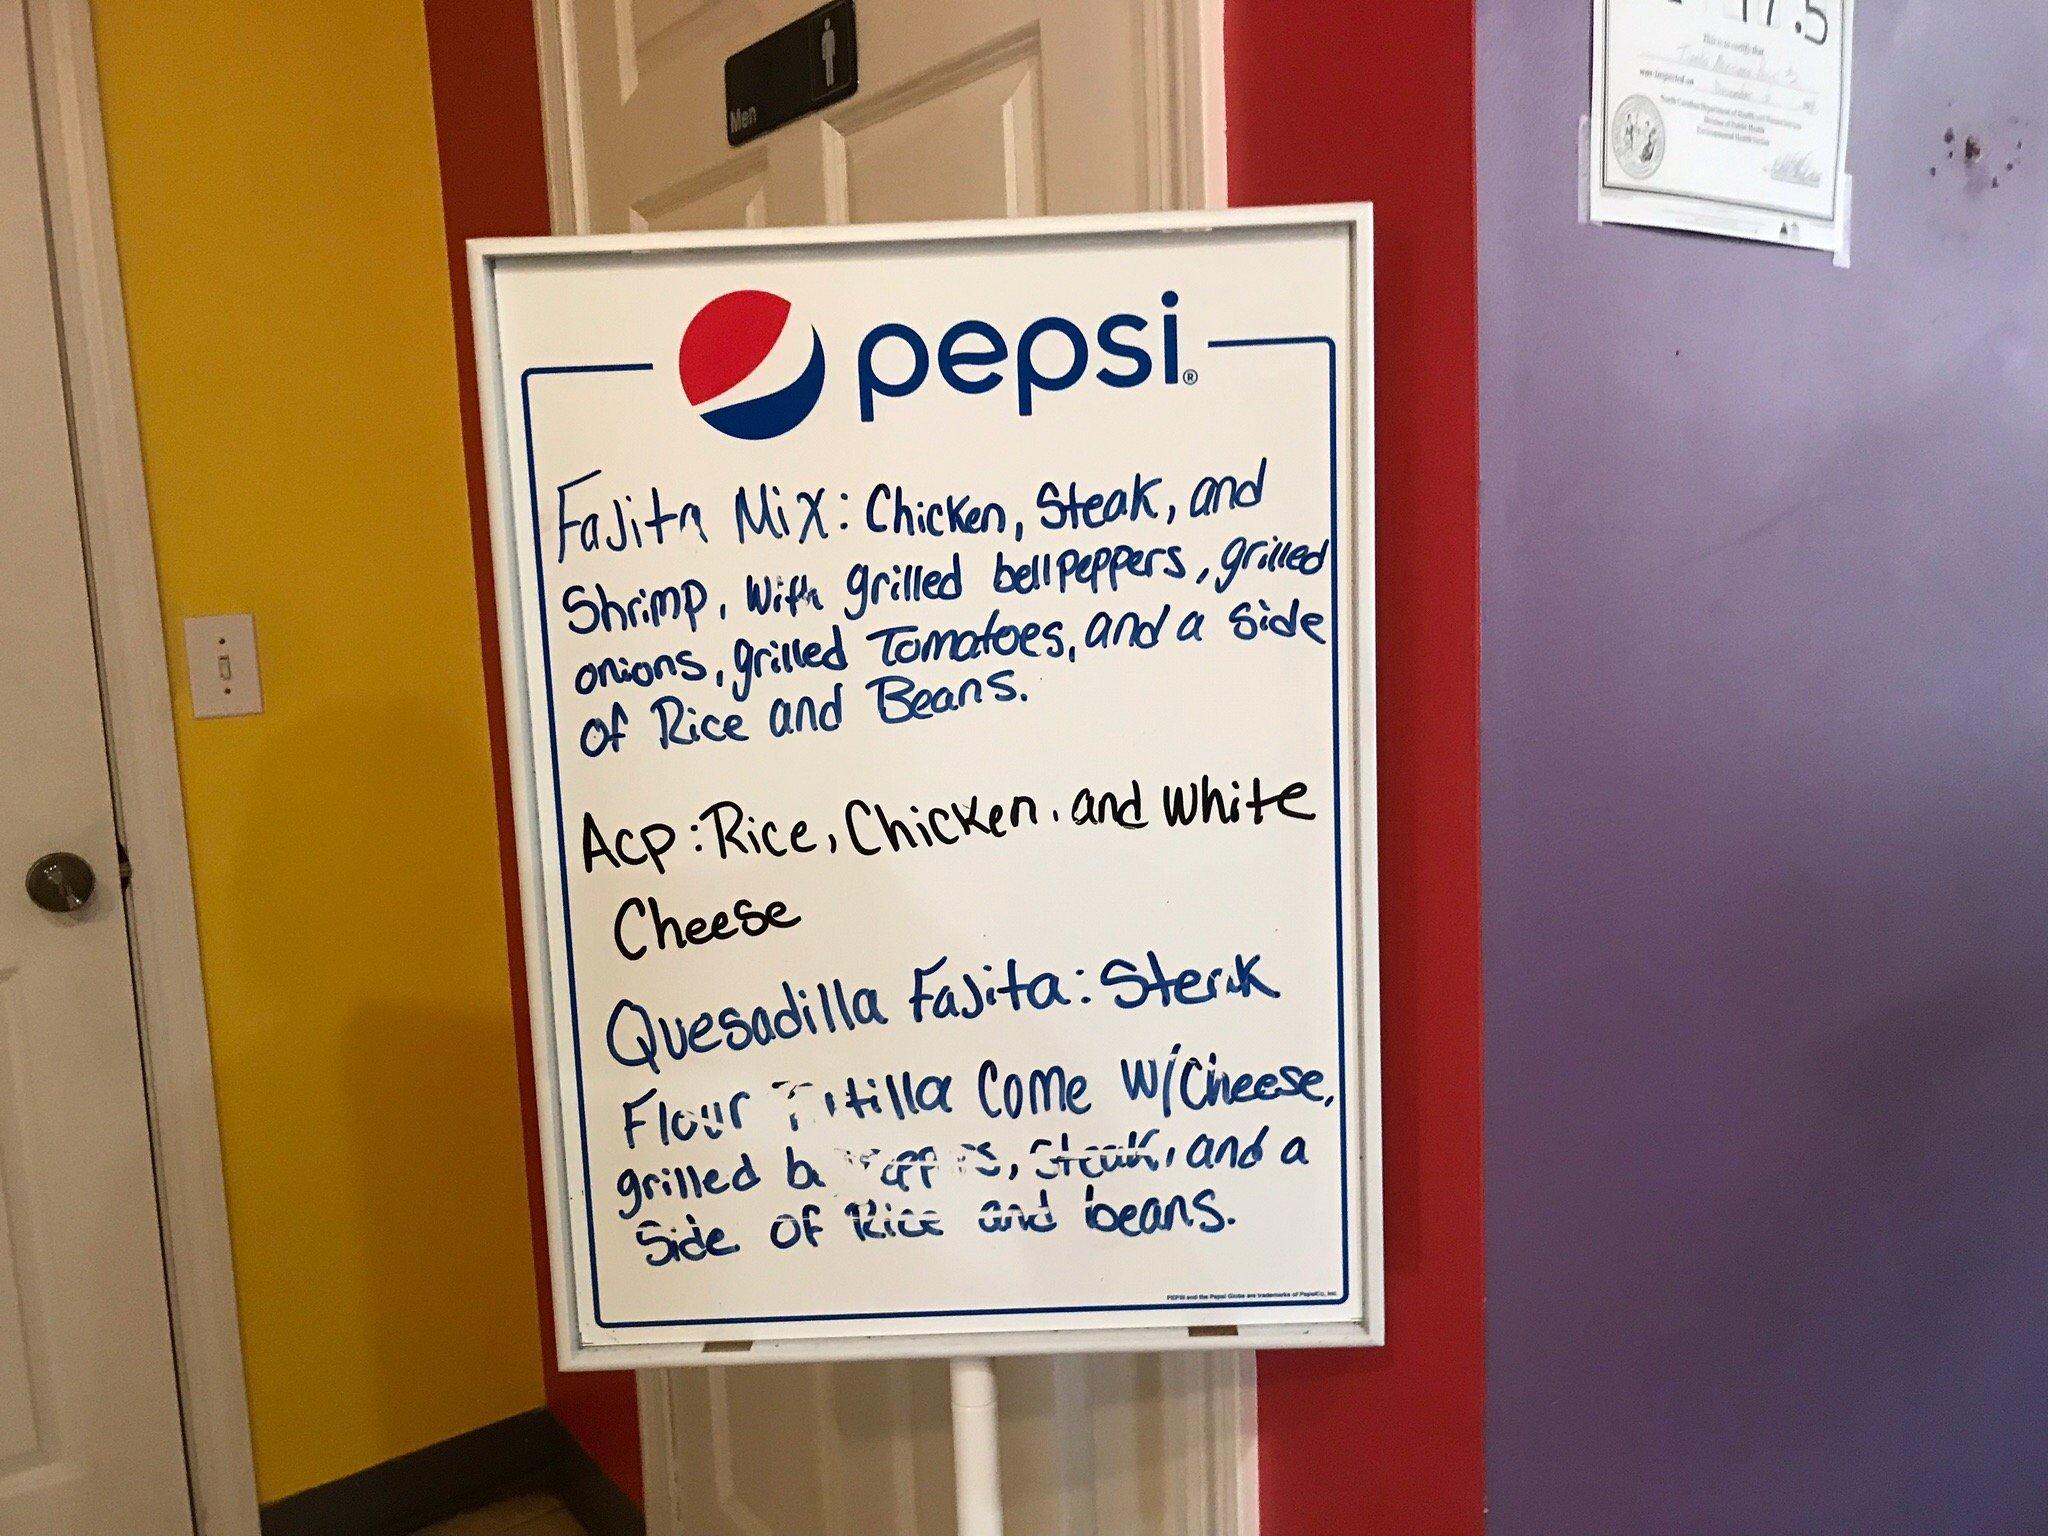 Men
17.5
This is to certify that
was inspected on
North Carolina Department of Health and Human Services
Division of Public Health
Environmental Health Section
pepsi®
Fajita Mix: Chicken, Steak, and
Shrimp, With grilled bellpeppers, grilled
onions, grilled Tomatoes, and a Side
of Rice and Beans.
Acp: Rice, Chicken, and White
Cheese
Quesadilla Fajita: Steak
Flour Come W/Cheese,
grilled Steak, and a
Side of Rice and beans.
PEPSI and the Pepsi Globe are trademarks of PepsiCo, Inc.